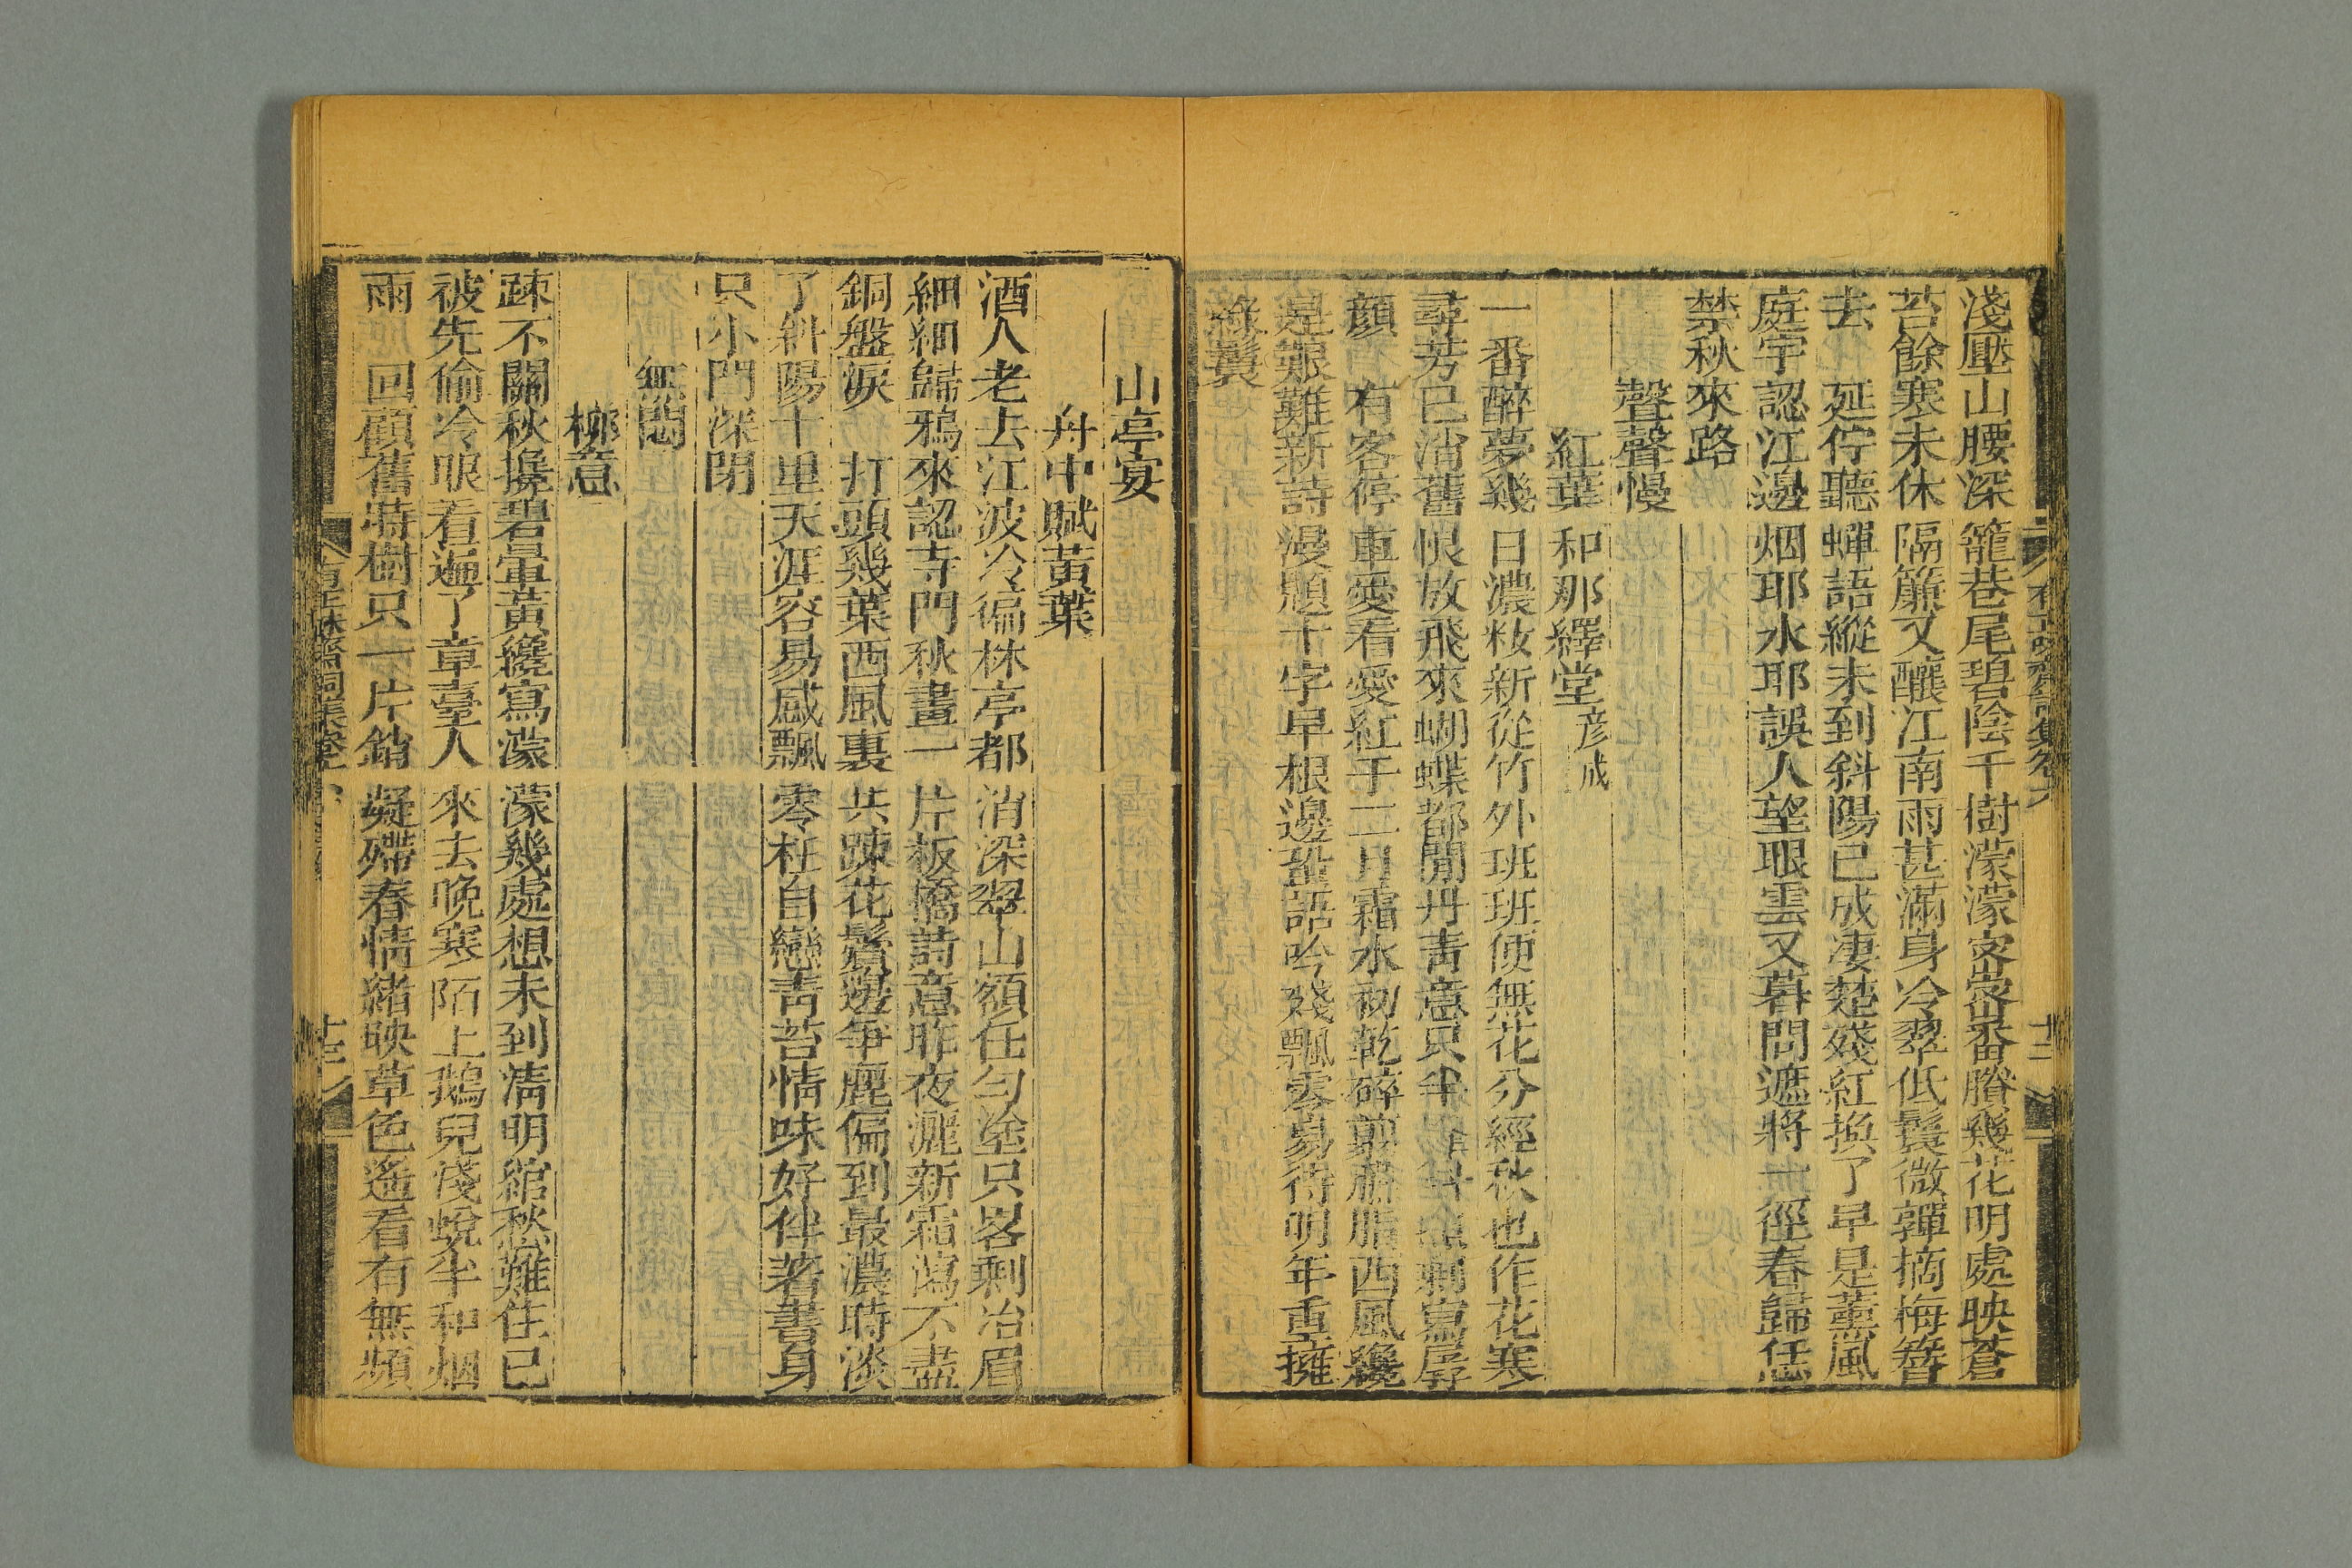 淺壓山腰深籠巷尾碧陰千樹濛濛
幾花明處映蒼
苔餘寒未休隔簾又釀江南雨甚滿身冷翠低鬟微嚲摘梅簪
去　延佇聽蟬語縱未到斜陽已成凄楚殘紅換了早是薰風
庭宇認江邊烟耶水耶誤人望眼雲又暮問遮將 徑春歸恁
禁秋來路
聲聲慢
紅葉　和那繹堂彦成
一番醉夢幾日濃妝新從竹外班班便無花分經秋也作花寒
尋芳已消舊恨放飛來蝴蝶都閒丹青意只 剩寫孱
顏　有客停車愛看愛紅于二月霜水初乾碎翦臙脂西風纔
是艱難新詩漫題十字早根邊蛩語吟殘飄零易待明年重擁
綠鬟
山亭宴
舟中賦黃葉
酒人老去江波冷徧林亭都消深翠山額任勻塗只畧剩冶眉
細細歸鴉來認寺門秋畫一片板橋詩意昨夜灑新霜瀉不盡
銅盤淚　打頭幾葉西風裏共疎花鬢邊爭麗偏到最濃時淡
了斜陽十里天涯容易感飄零枉自戀青苔情味好伴著書身
只小門深閉
無悶
柳意
疎不關秋搀碧暈黃纔寫濛濛幾處想未到清明綰愁難住已
被先偷冷眼看遍了章臺人來去晚寒陌上鵝兒淺蛻半和烟
雨　回顧舊時樹只一片銷凝殢春情緒映草色遙看有無頻
有正味齋詞集卷六
十二